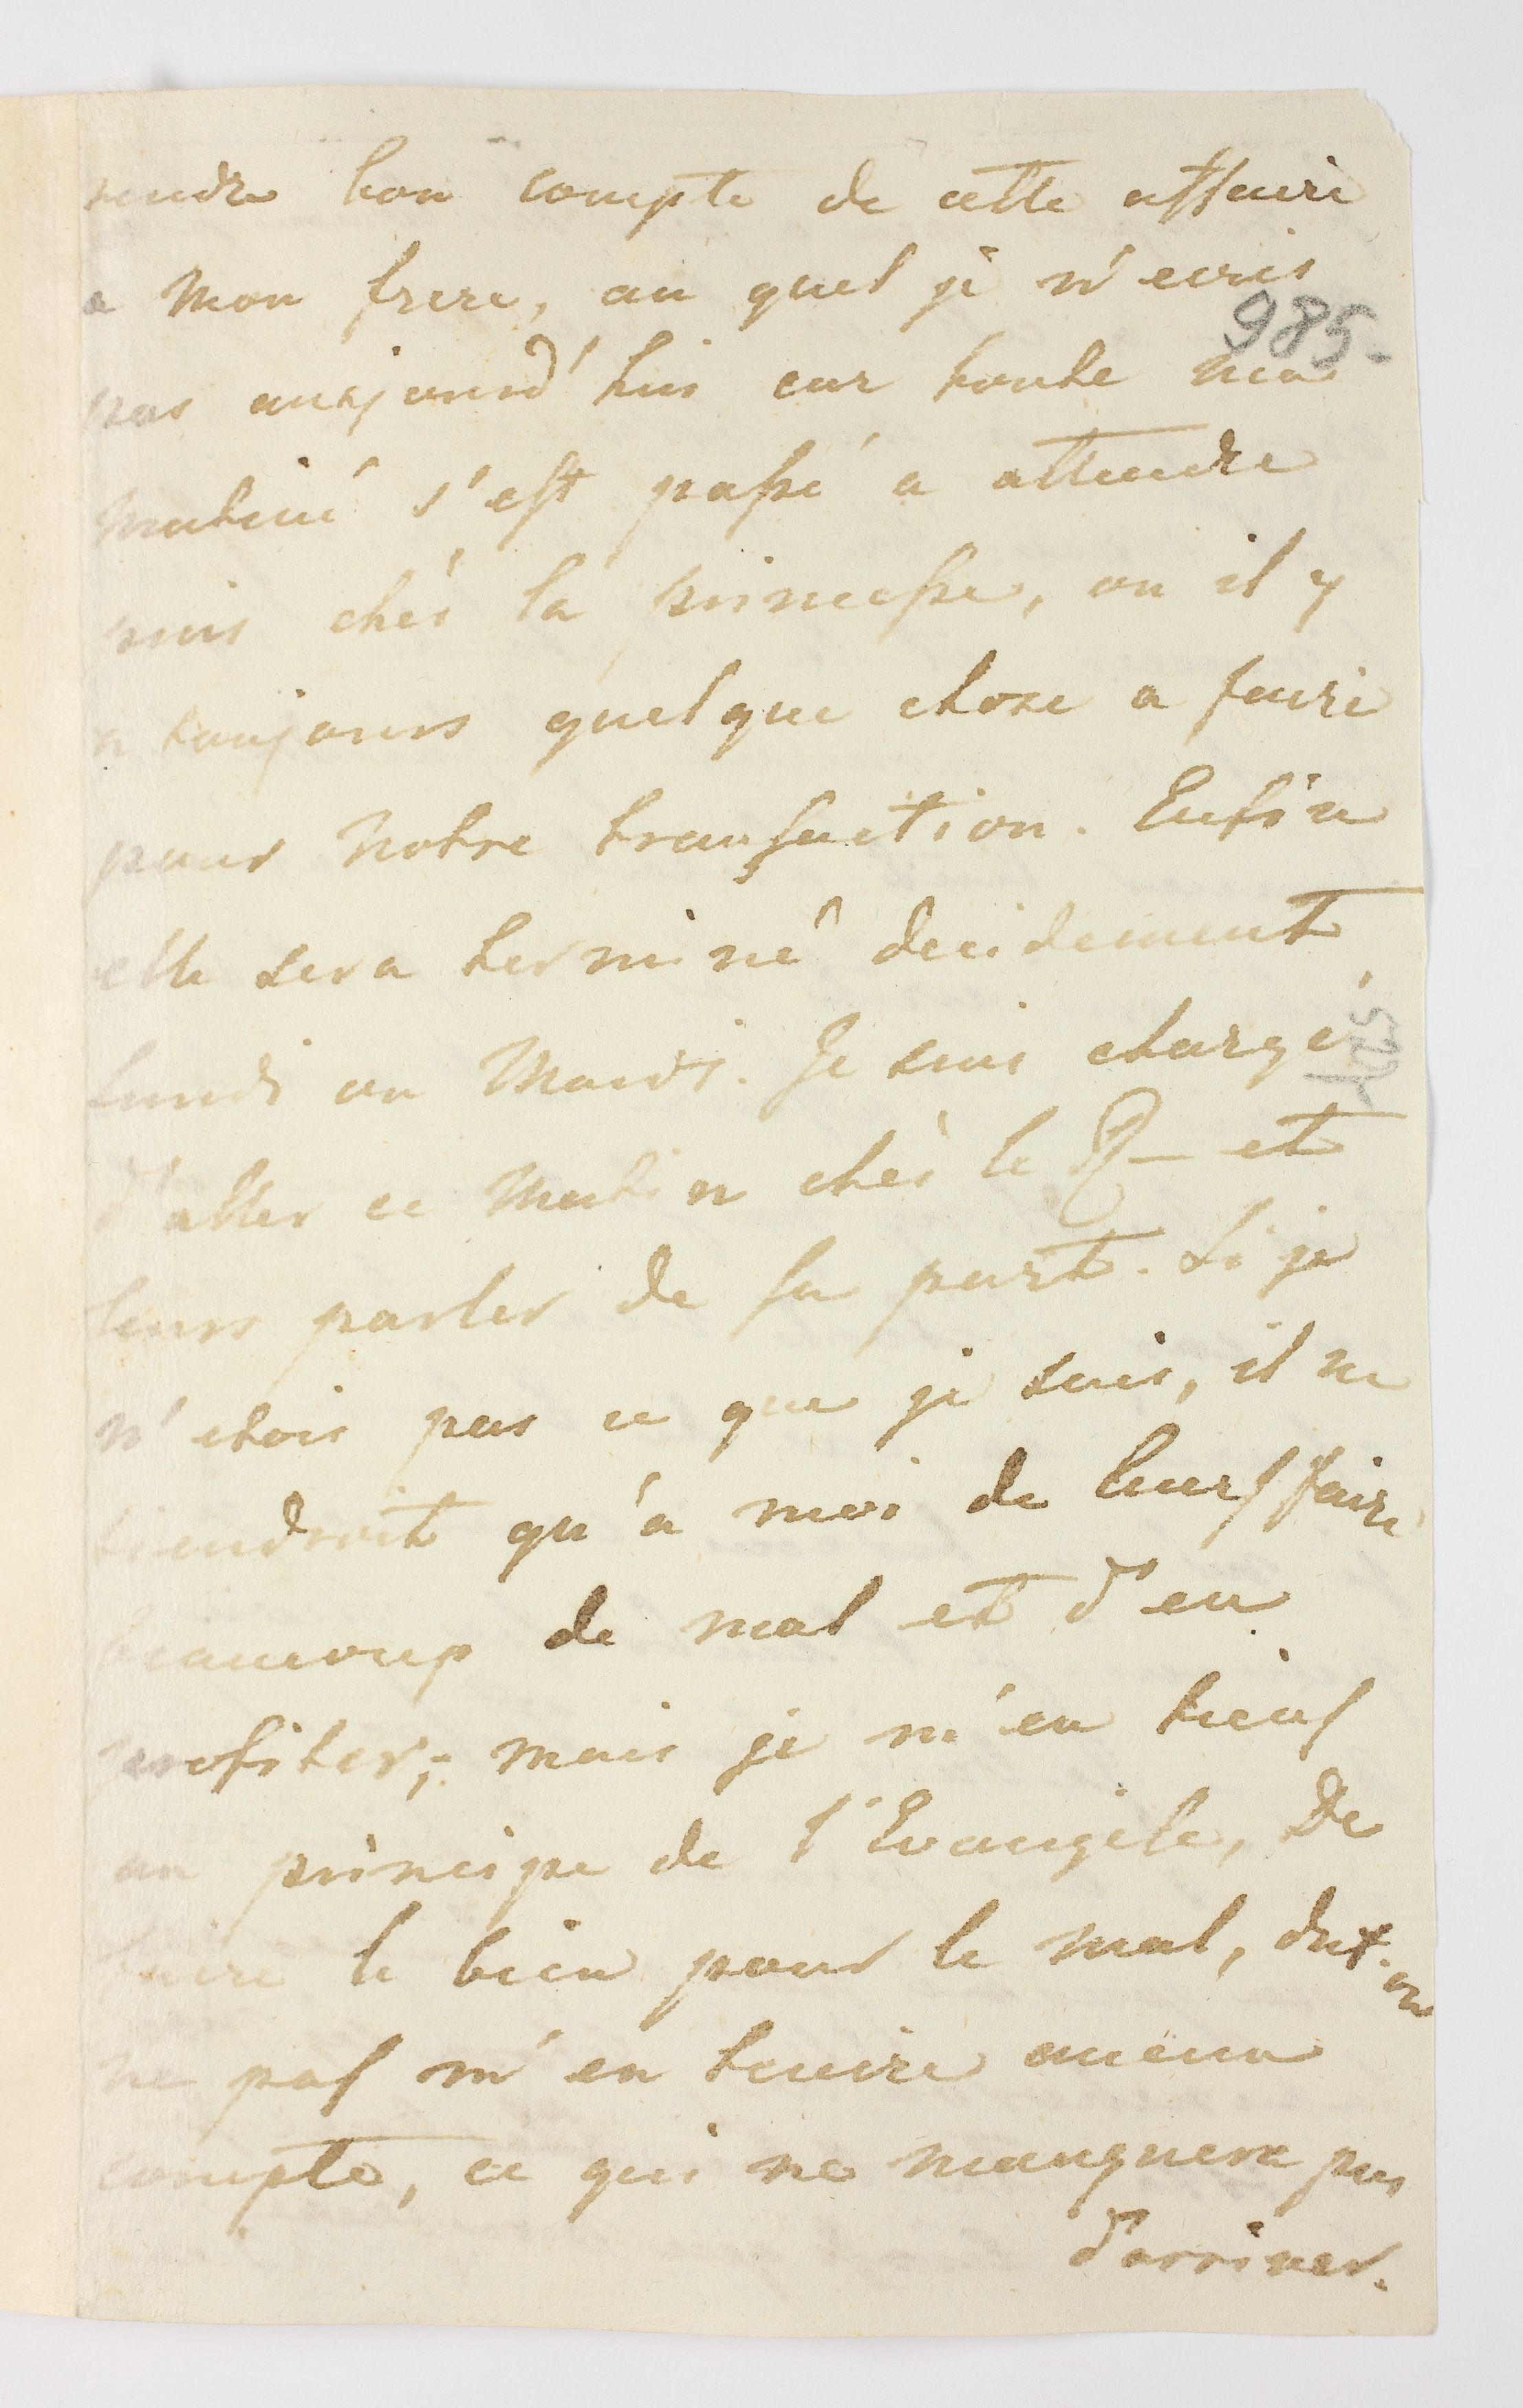 rendre bon compte de cette affaire
a mon frere, au quel je n'ecris
985.
pas aujourd'hui car toute ma
matiné s'est passé a attendre
puis chés la princesse, ou il y
a toujours quelque chose a faire
pour notre transaction. Enfin
elle sera terminé decidement
lundi ou Mardi. Je suis chargé
d'aller ce matin chés le R— et
leurs parler de sa part. Si je
n'etois pas ce que je suis, il ne
tiendroit qu'à moi de leurs faire
beaucoup de mal et d'en
profiter; mais je m'en tiens
au principe de l'Evangile, De
faire le bien pour le mal, dut-on
ne pas m'en tenire aucun
compte, ce qui ne manquera pas
d'arriver.